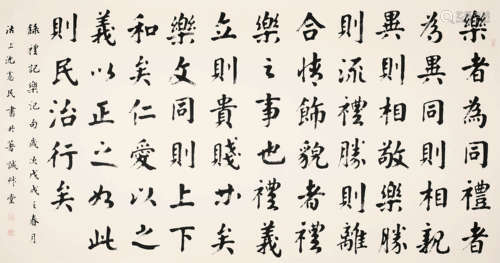 樂者為同禮者
為異同則相親
異則相敬樂勝
則流禮勝則離
合情飾貌者禮
樂之事也禮義
立則貴賤等矣
樂文同則上下
和矣仁愛以之
義以正之如此
則民治行矣
錄禮記樂記句歲次戊戌之春月
沈嵩民書於養誠堂